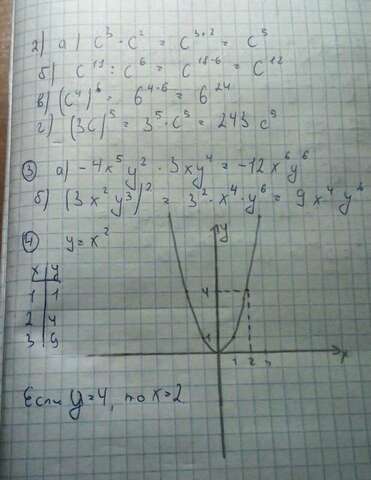 2) а) c³ · c² = c³⁺² = c⁵
б) c¹⁸ : c⁶ = c¹⁸⁻⁶ = c¹²
в) (c⁴)⁶ = 6⁴·⁶ = 6²⁴
г) (3c)⁵ = 3⁵ · c⁵ = 243 c⁵
③ а) -4x⁵y² · 3xy⁴ = -12x⁶y⁶
б) (3x²y³)² = 3² · x⁴ · y⁶ = 9x⁴y⁶
④ y = x²
y
x y
1 1
4
2 4
3 9
1
1 2 3
x
Если y=4, то x=2